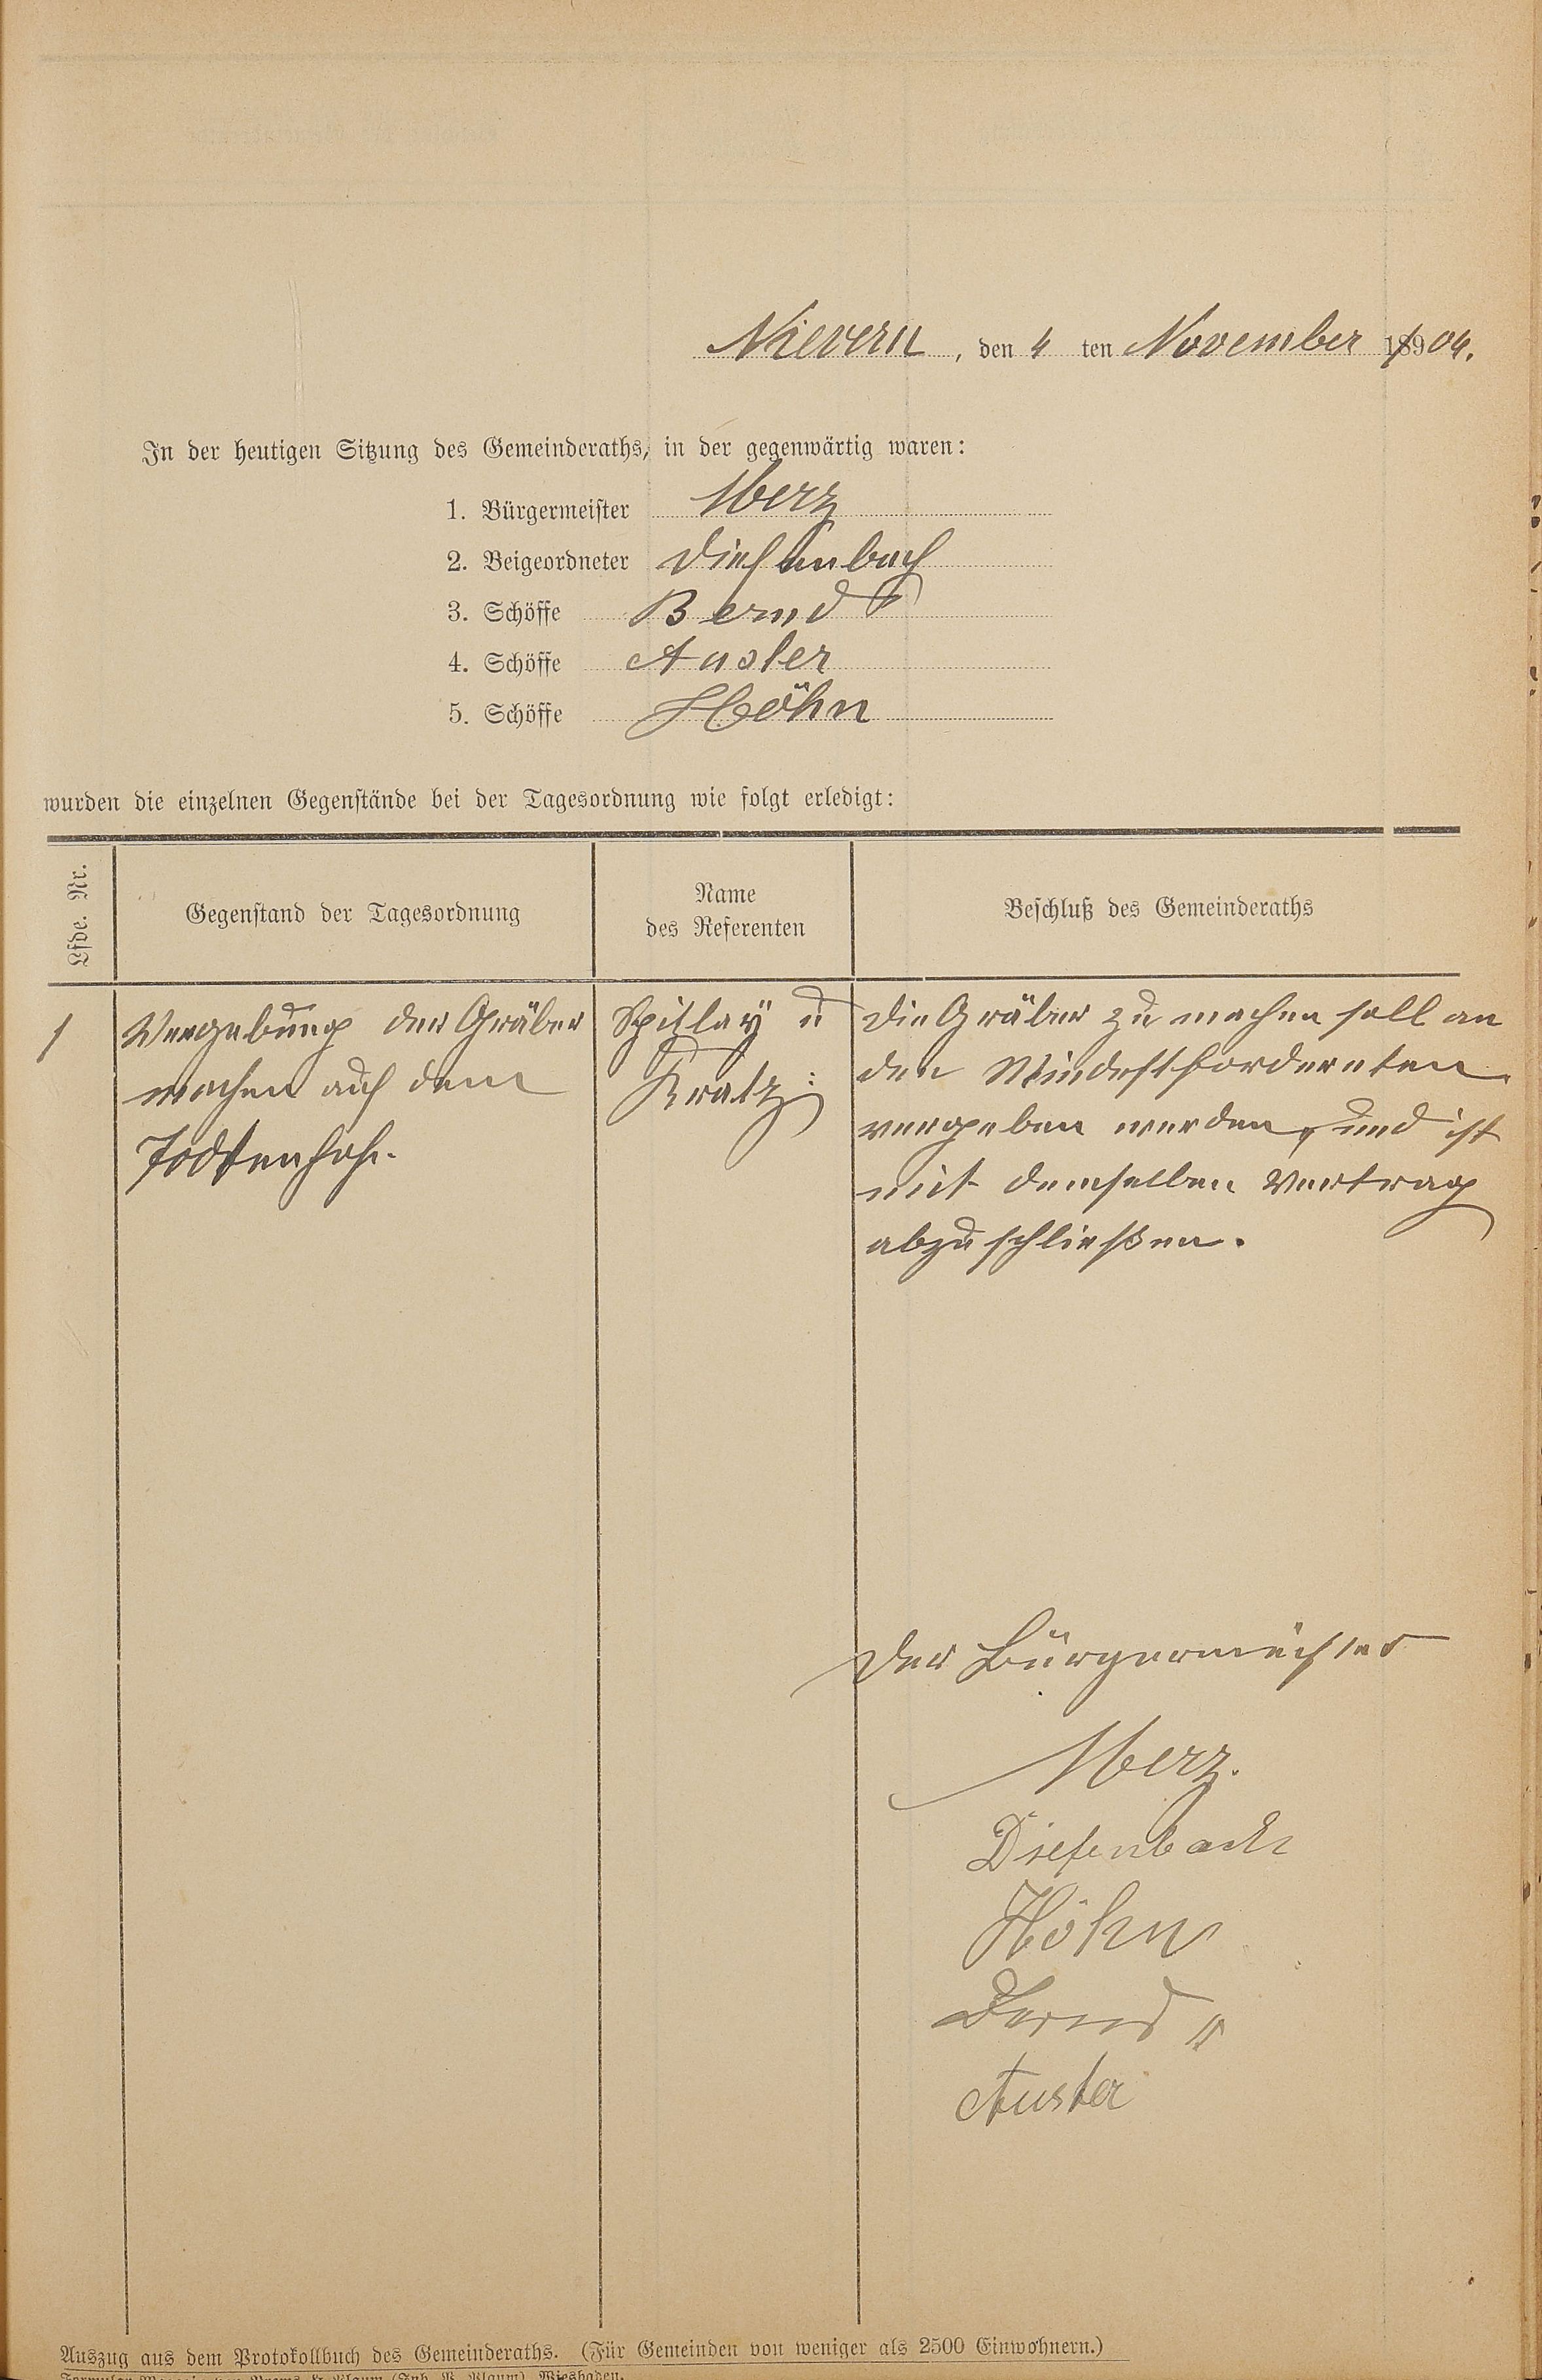 Nievern, den 4 ten November 1904.
In der heutigen Sitzung des Gemeinderaths, in der gegenwärtig waren:
1. Bürgermeister Merz
2. Beigeordneter Diefenbach
3. Schöffe Bernd
4. Schöffe Auster
5. Schöffe Höhn
wurden die einzelnen Gegenstände bei der Tagesordnung wie folgt erledigt:
Lfde. Nr.
Gegenstand der Tagesordnung
Name
des Referenten
Beschluß des Gemeinderaths
1
Vergebung der Gräber
machen auf dem
Todtenhofe.
Spitlaÿ u
Kratz
Die Gräber zu machen soll an
den Mindestfordernten
vergeben werden, und ist
mit demselben Vertrag
abzuschließen.
Der Bürgermeister
Merz.
Diefenbach
Höhn
Bernd
Auster
Auszug aus dem Protokollbuch des Gemeinderaths. (Für Gemeinden von weniger als 2500 Einwohnern.)
Wiesbaden.